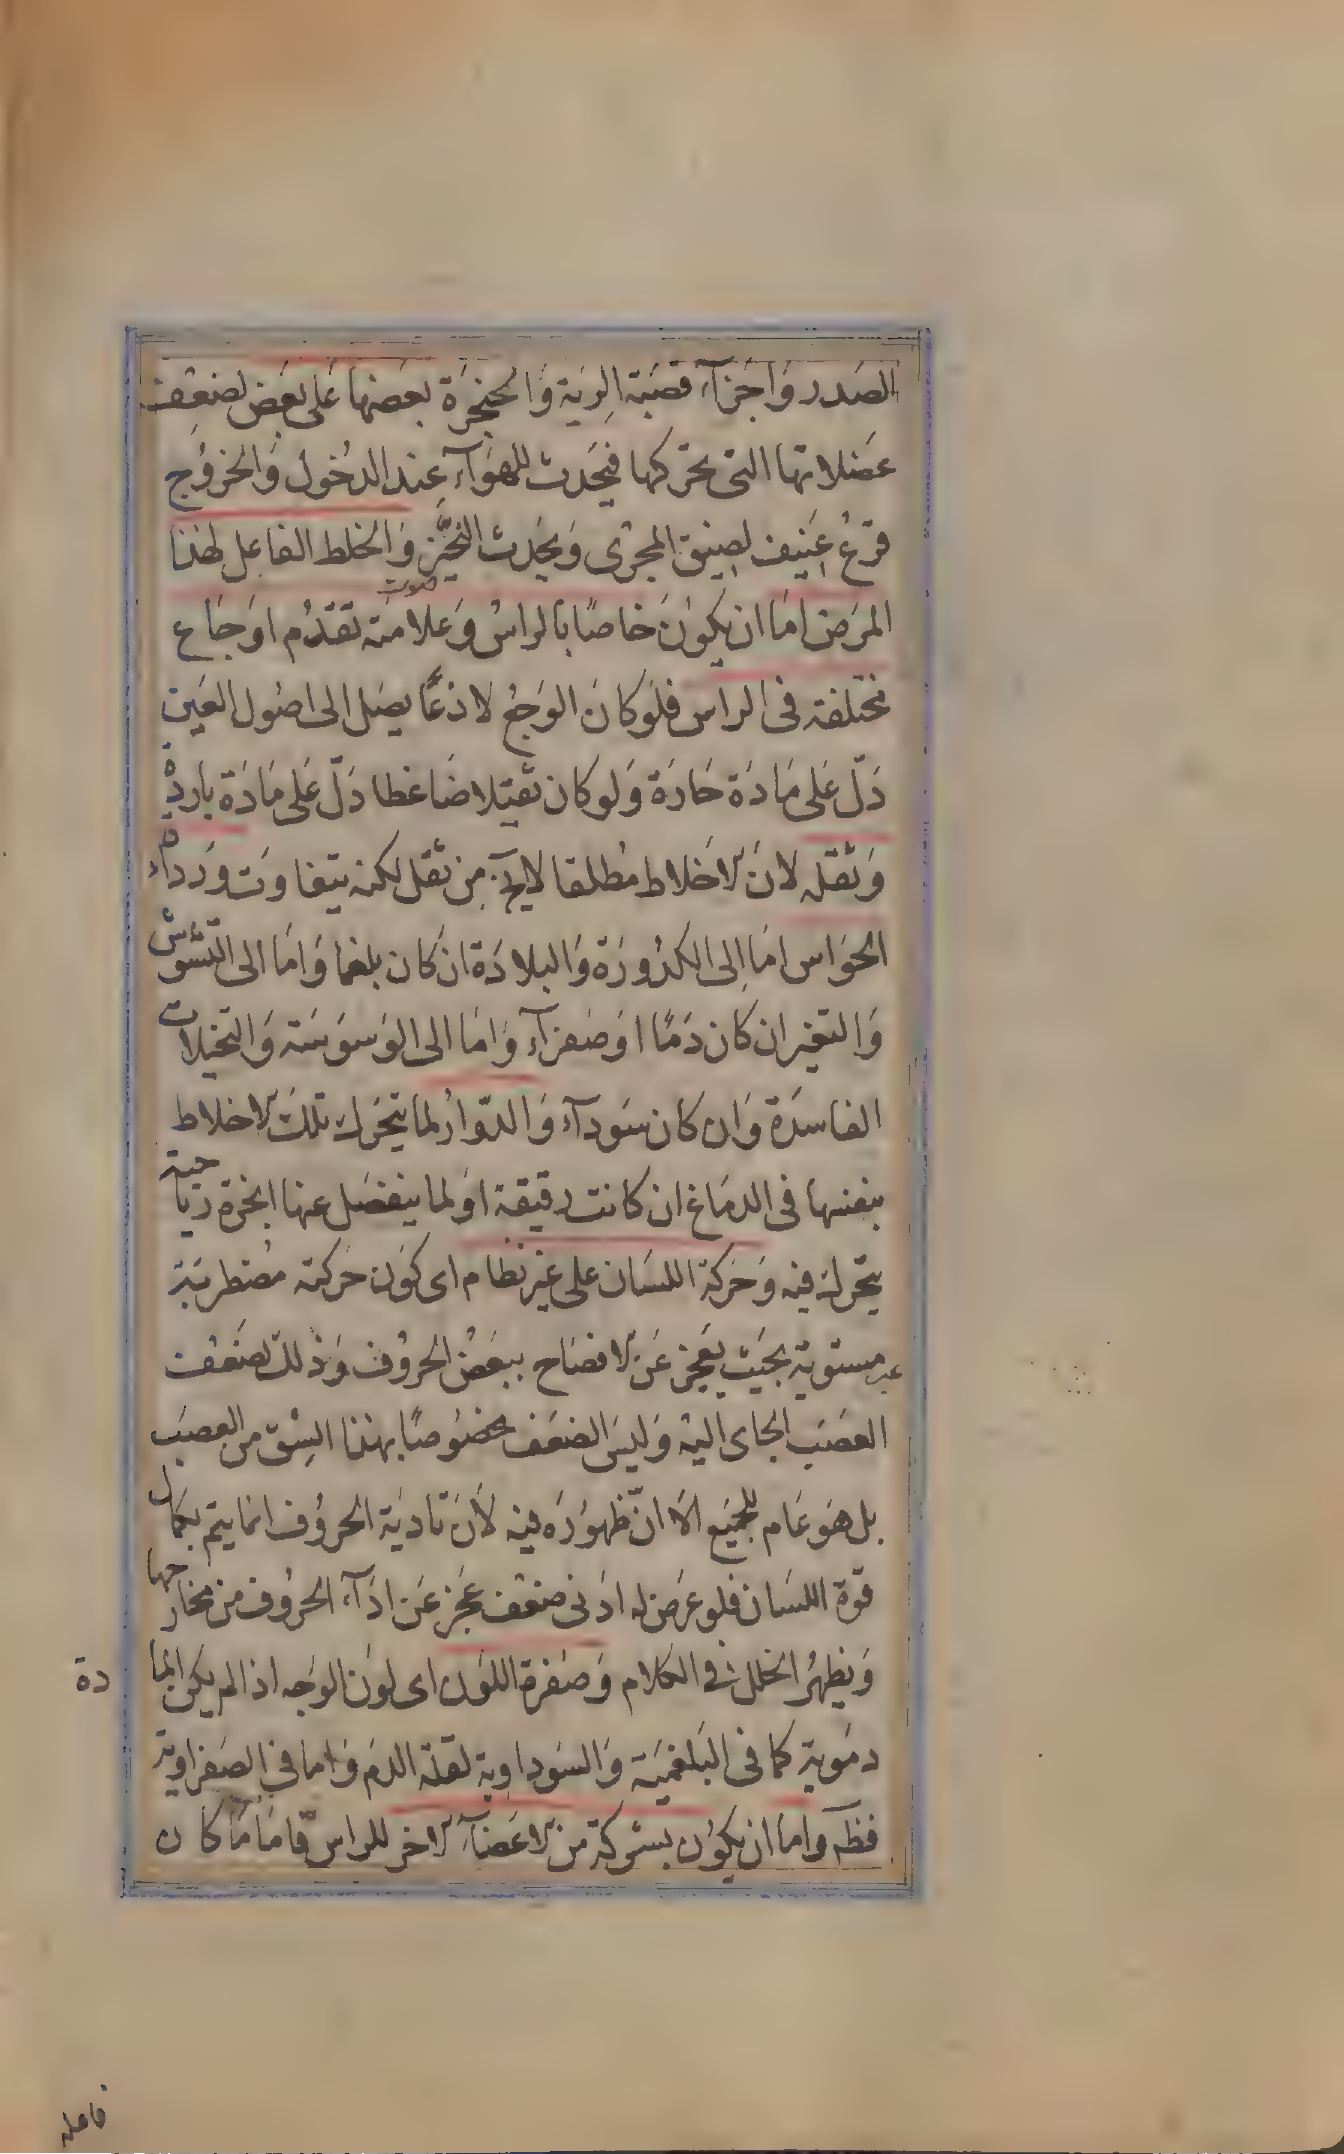 الصَدر وَاَجزَآء قصَبَة الرِيَة وَالحَنجَرَة بعَضها عَلى بعَض لضعِف
عضَلاتها التى تحرّكها فيَحدث للهوَآء عِند الدخُول وَالخرُوج
قرعُ عَنِيف لضِيق المجرٰى وَيَحُدث النَخِير وَالخلط الفاعل لهذا
صوت
المرَض امَا ان يكوُن خاصًا بالراسُ وَعلامَته تقدُم اوَجَاع
مختلفة فى الراس فلوَ كانَ الوَجعُ لاَذعًا يصَل الى اصُول العَين
دَلّ عَلى مَادَة حَادَة وَلو كان ثقيَلا ضَاغطا دَلّ عَلى مَادَة باردة
وَثقله لانَ الاخَلاط مُطلقا لايخ من ثقل لكنه يتفاوَت وَرداءة
الحوَاس امَا اِلى الكدُورَة وَالبلادَة انَ كان بلغما وَامَا الى التشوّش
وَالتغير ان كان دَمًا اوَ صَفرَآء وَامَا الى الوَسوَسَة وَالتخيلات
الفاسدَة وَان كان سَودآء وَالدوارُ لما يتحَرك تلك الاخلاط
بنفسها فى الدمَاغ ان كانت رقيقة اوَ لما ينفصَل عنها ابخرة رياحية
يتحرك فيه وَحَركة اللسَان على غير نظام اى كوَن حَركته مضطربَة
غير مستوية بحَيث يَعجز عَن الافصَاح ببعَض الحروُف وَذلك لضَعف
العصَب الجاى اليه وَليسَ الضعَف مخصُوصًا بهذا الشِق من العصَب
بل هوَ عَام للجَيمع الاَ انّ ظهوُرَه فيه لاَنَ تاديَة الحروُف انما يتم بكمَال
قوة اللسَان فلو عرَض له ادَنى ضعف عَجَز عَن ادَآء الحروُف من مخارجها
وَيظهرُ الخلل فى الكلام وَصُفرة اللوَن اى لوَن الوَجه اذا لم يكن الما
دة
دمَوية كما فى البَلغميَة وَالسَوداوية لقلة الدَم وَاما فى الصَفراوية
فظَ وَاما ان يكوُن بشركَة من الاعَضآء الاخر للراس فَامَا مَا كان
فاعله